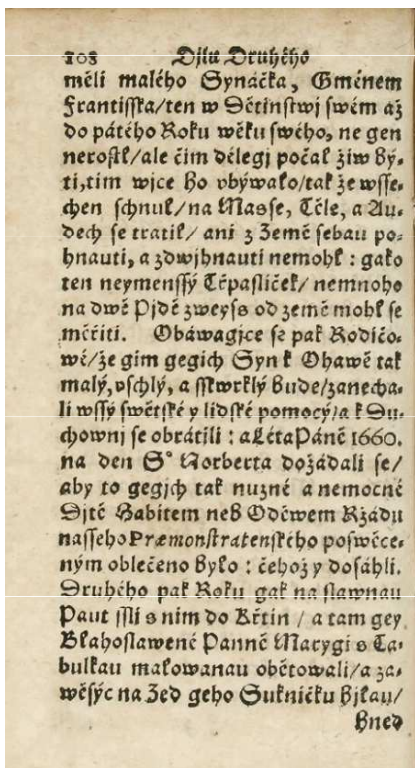 108 Djlu Druhého
měli malého Synáčka, Gménem
Frantisska/ten w Dětinstwj swém až
do pátého Roku wěku swého, ne gen
nerostl/ale čim dělegj počal žiw bý-
ti,tim wjce ho vbýwalo/tak že wsse-
chen schnul/na Masse, Těle, a Au-
dech se tratil/ ani z Země sebau po-
hnauti, a zdwjhnauti nemohl : gako
ten neymenssý Trpasliček/ nemnoho
na dwě Pjdě zweyss od země mohl se
měřiti. Obáwagjce se pak Rodičo-
wé/že gim gegich Syn k Ohawě tak
malý,vschlý, a sskwrklý bude/zanecha-
li wssý swětské y lidské pomocy/a k Du-
chownj se obrátili : a Léta Páně 1660.
na den S° Norberta dožádali se/
aby to gegjch tak nuzné a nemocné
Djtě Habitem neb Oděwem Ržádu
nasseho Præmonstratenského poswěce-
ným oblečeno bylo : čehož y dosáhli.
Druhého pak Roku gak na slawnau
Paut ssli s nim do Křtin / a tam gey
Blahoslawené Panně Marygi s Ta-
bulkau malowanau obětowali/a za-
wěsýc na Zed geho Sukničku bjlau/
hned